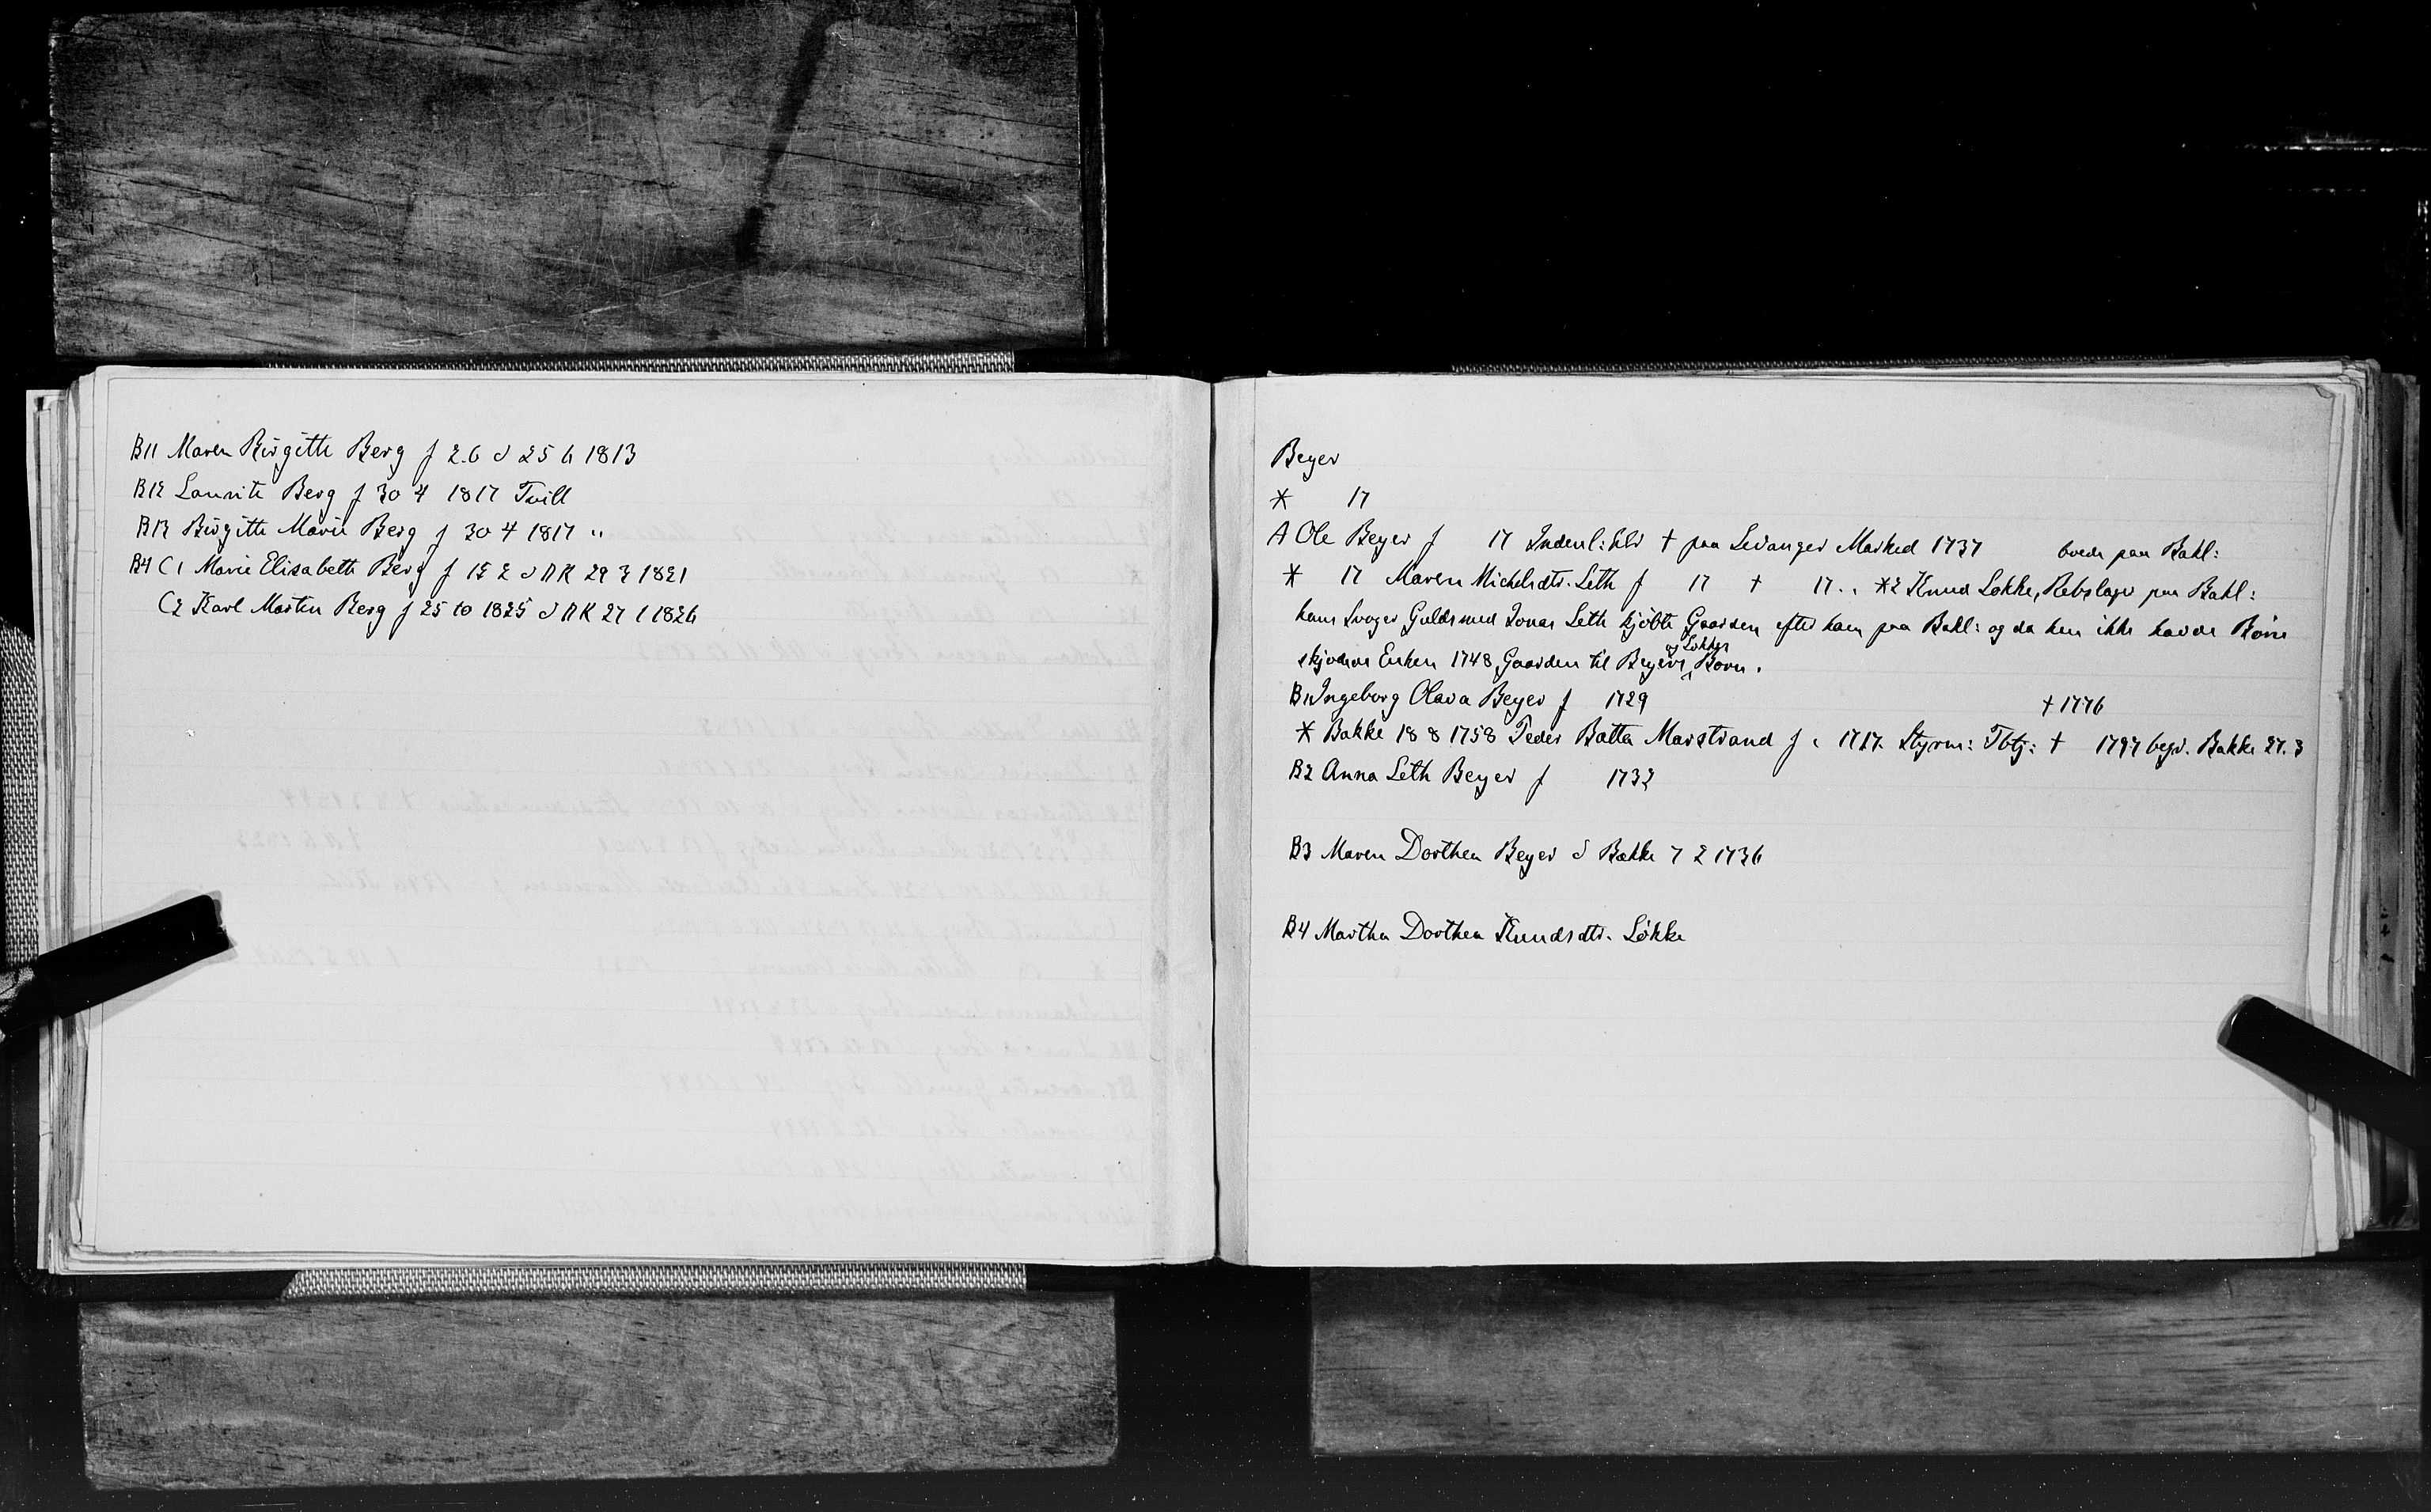 B11 Maren Birgitte Berg f 2.6 d 25 6 1813
B12 Laurits Berg f 30 4 1817 Tvill
B13 Birgitte Marie Berg f 30 4 1817 "
B4 C1 Marie Elisabeth Berg f 15 2 d DK 29 3 1821
C2 Karl Martin Berg f 25 10 1825 d DK 27 1 1826
Beyer
* 17
A Ole Beyer f 17 Indenl: † paa Levanger Marked 1737 boede paa Bakl:
* 17 Maren Michelsdtr. Leth f 17 † 17.. *2 Knud Løkke, Rebslager paa Bakl:
hans Svoger Guldsmed Jonas Leth kjøbte Gaarden efter ham paa Bakl: og da han ikke havde Børn
skjødede Enken 1748 Gaarden til Beyers og Løkkes Børn.
B1 Ingeborg Olava Beyer f 1729 † 1776
* Bakke 18 8 1758 Peder Batta Marstrand f c 1717. Styrm: Tbtj: † 1797 begr. Bakke 27.3
B2 Anna Leth Beyer f 1732
B3 Maren Dorthea Beyer d Bakke 7 2 1736
B4 Martha Dorthea Knudsdtr. Løkke